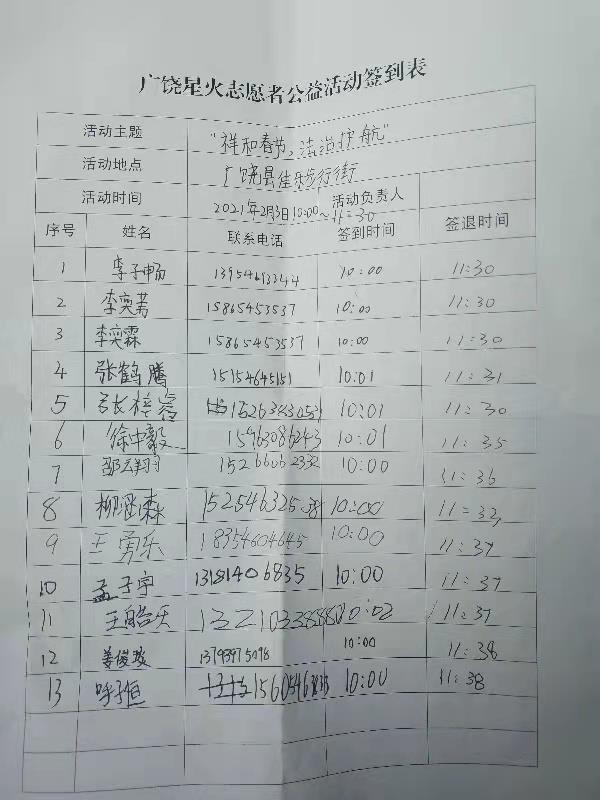 广饶星火志愿者公益活动签到表
活动主题 "祥和春节，法治护航"
活动地点 广饶县佳乐步行街
活动时间 2021年2月3日10:00~11:30 活动负责人
序号 姓名 联系电话 签到时间 签退时间
1 李子畅 10:00 11:30
2 李奕菕 15865453537 10:00 11:30
3 李奕霖 15865453537 10:00 11:30
4 张鹤腾 15154645151 10:01 11:31
5 10:01 11:30
6 徐中毅 15963086243 10:01 11:35
7 邵云翔 15266062332 10:00 11:36
8 柳 森 10:00
9 王勇乐 18354604645 10:00 11:37
10 孟子宇 13181406835 10:00 11:37
11 王皓乐 10:02 11:37
12 姜俊 13793975098 10:00 11:38
13 子恒 10:00 11:38